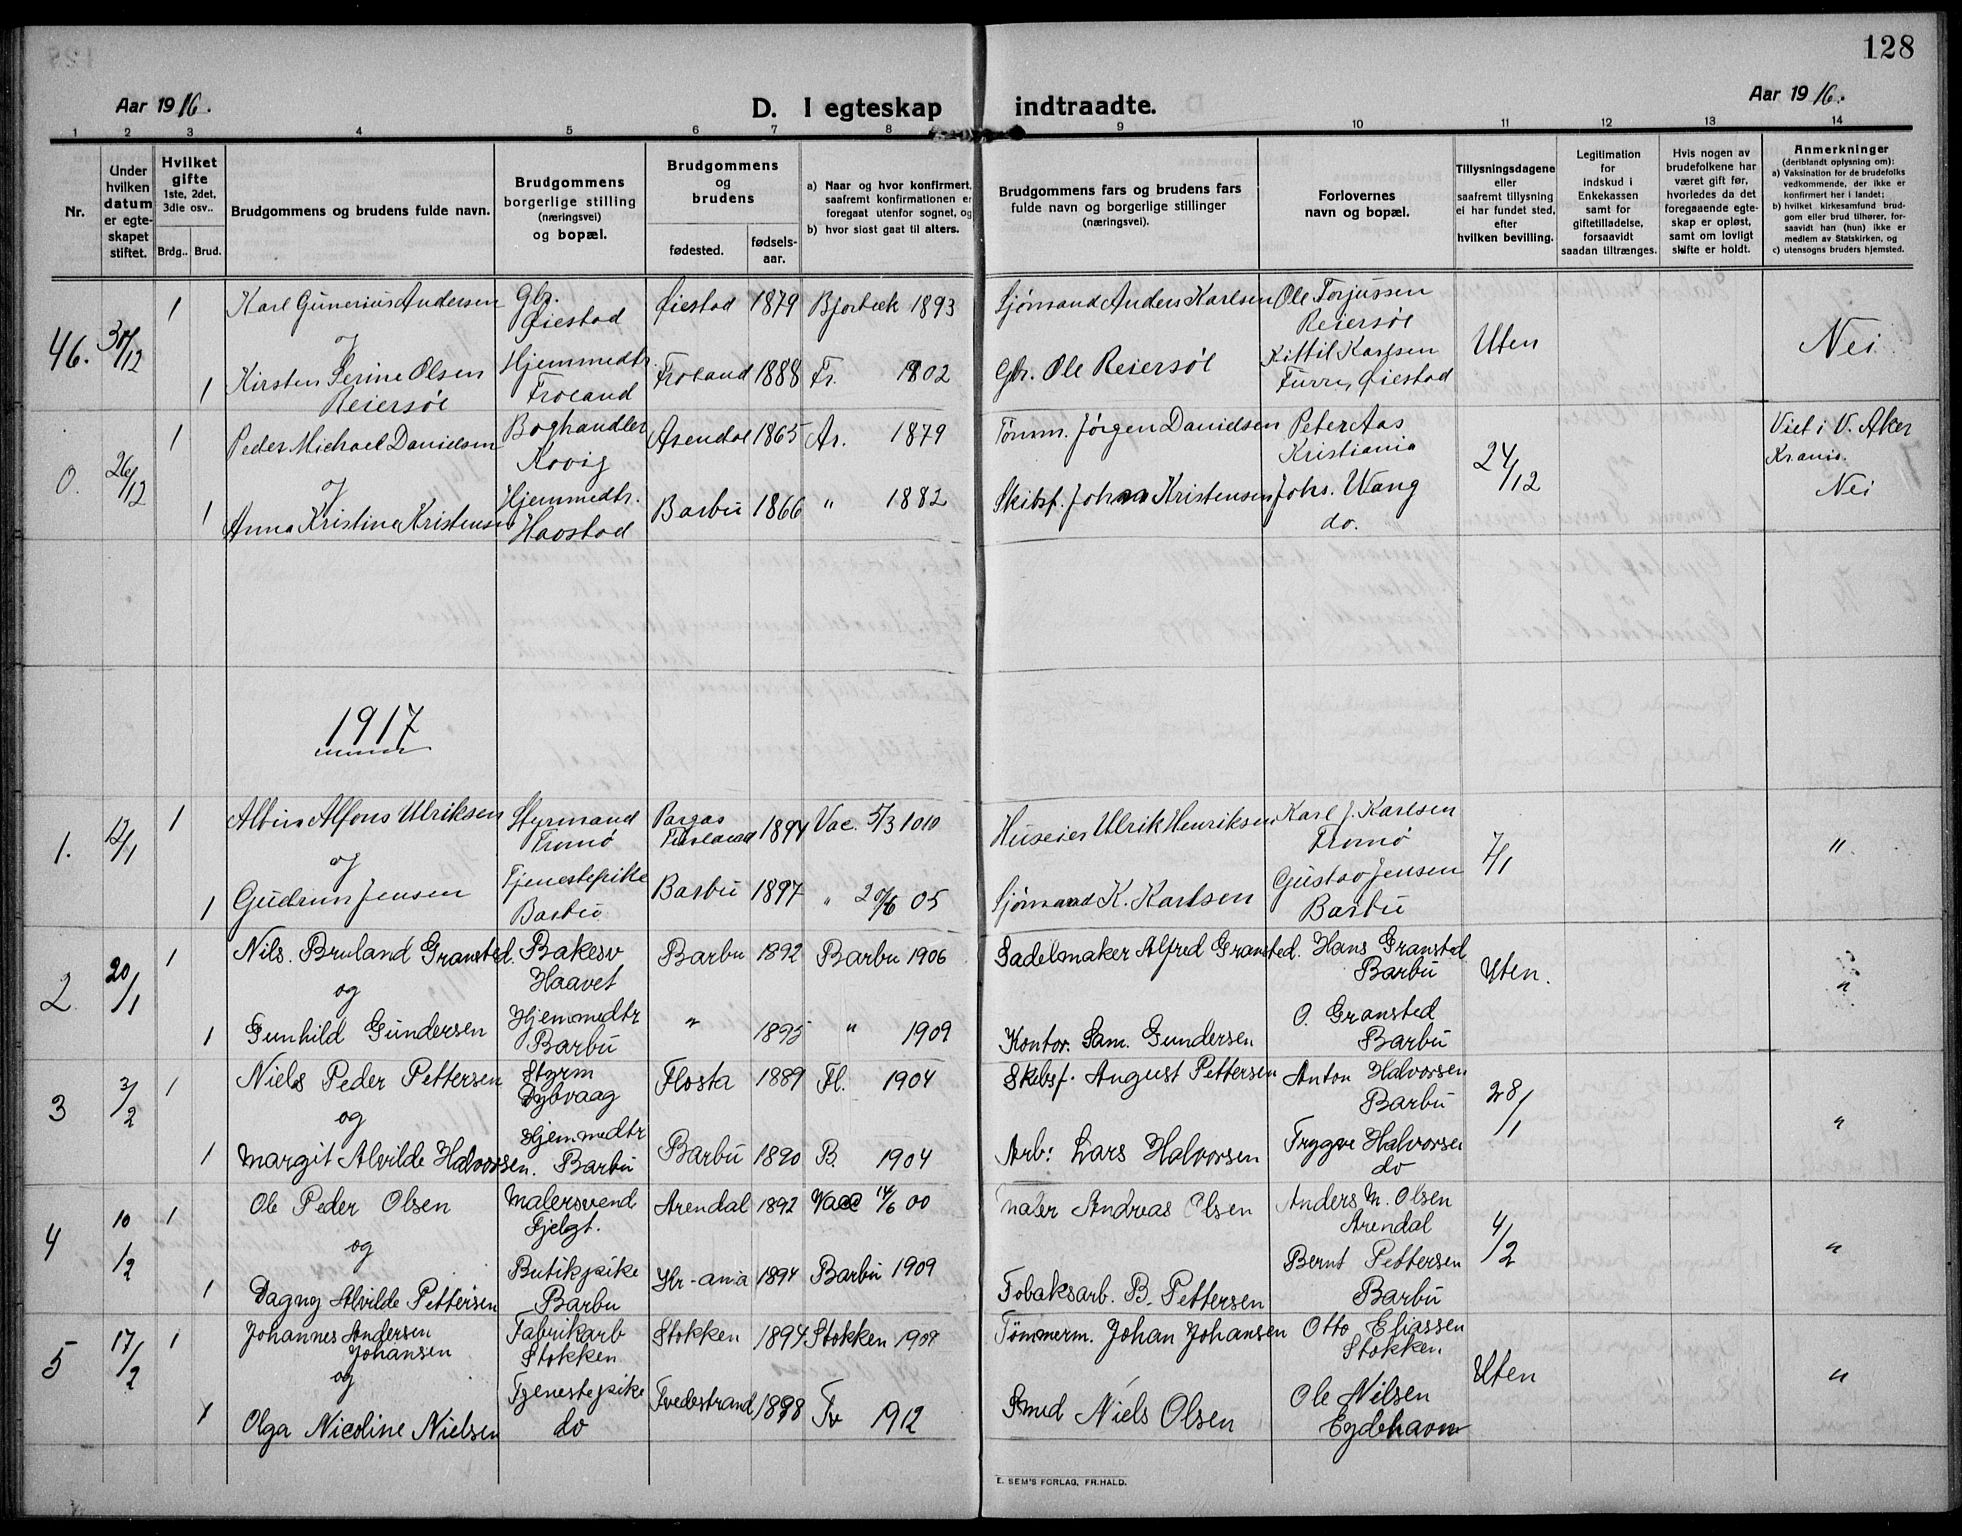 128
Aar 1916.
D. I egteskap indtraadte.
Aar 1916.
1 2 3 4 5 6 7 8 9 10 11 12 13 14
Nr.
Under hvilken datum er egteskapet stiftet.
Hvilket gifte 1ste, 2det, 3die osv..
Brdg.. Brud.
Brudgommens og brudens fulde navn.
Brudgommens borgerlige stilling (næringsvei) og bopæl.
Brudgommens og brudens
fødested.
fødsels-aar.
a) Naar og hvor konfirmert, saafremt konfirmationen er foregaat utenfor sognet, og
b) hvor sidst gaat til alters.
Brudgommens fars og brudens fars fulde navn og borgerlige stillinger (næringsvei).
Forlovernes navn og bopæl.
Tillysningsdagene eller saafremt tillysning ei har fundet sted, efter hvilken bevilling.
Legitimation for indskud i Enkekassen samt for giftetilladelse, forsaavidt saadan tiltrænges.
Hvis nogen av brudefolkene har været gift før, hvorledes da det foregaaende egteskap er opløst, samt om lovligt skifte er holdt.
Anmerkninger
(deriblandt oplysning om):
a) Vaksination for de brudefolks vedkommende, der ikke er konfirmert her i landet;
b) hvilket kirkesamfund brudgom eller brud tilhører, forsaavidt han (hun) ikke er medlem av Statskirken, og
c) utensogns bruders hjemsted.
46. 30/12 1 Karl Gunerius Andersen Gbr. Øiestad Øiestad 1879 Bjorbæk 1893 Sjømand Anders Karlsen Ole Torjussen Reiersøl Uten Nei
og
1 Kirsten Serine Olsen Reiersøl Hjemmedtr. Froland Froland 1888 Fr. 1902 Gbr. Ole Reiersøl Kittil Karlsen Furre, Øiestad
0. 26/12 1 Peder Michael Danielsen Boghandler Arendal 1865 Ar. 1879 Tømm. Jørgen Danielsen Peter Aas Kristiania 24/12 Viet i V. Aker Krania. Nei
og
1 Anna Kristine Kristensen Hjemmedtr. Haastad Barbu 1866 " 1882 Skibsf. Johan Kristensen Johs. Wang do.
1917
1. 12/1 1 Albin Alfons Ulriksen Styrmand Tromø Pargas Finland 1894 Vac. 5/3 1010 Huseier Ulrik Henriksen Karl J. Karlsen Tromø 7/1 "
og
1 Gudrun Jensen Tjenestepike Barbu Barbu 1897 " 20/6 05 Sjømand K. Karlsen Gustav Jensen Barbu
2 20/1 1 Nils. Bruland Gransted. Bakesv Haavet Barbu 1892 Barbu 1906 Sadelmaker Alfred Gransted. Hans Gransted Barbu Uten. "
og
1 Gunhild Gundersen Hjemmedtr Barbu " 1895 " 1909 Kontor. Sam. Gundersen O. Gransted Barbu
3 3/2 1 Niels Peder Pettersen Styrm Dybvaag Flosta 1889 Fl. 1904 Skibsf. August Pettersen Anton Halvorsen Barbu 28/1 "
og
1 Margit Alvilde Halvorsen. Hjemmedtr Barbu Barbu 1890 B. 1904 Arb: Lars Halvorsen Trygve Halvorsen do
4 10/2 1 Ole Peder Olsen Malersvend Fjelgt. Arendal 1892 Vacc 14/6 00 Maler Andreas Olsen Anders M. Olsen Arendal 4/2 "
og
1 Dagny Alvilde Pettersen Butikpike Barbu Kr-ania 1894 Barbu 1909 Tobaksarb. B. Pettersen Bernt Pettersen Barbu
5 17/2 1 Johannes Andersen Johansen Fabrikarb Stokken Stokken 1894. Stokken 1909 Tømmerm. Johan Johansen Otto Eliassen Stokken Uten "
og
1 Olga Nicoline Nielsen Tjenestepike do Tvedestrand 1898 Tv 1912 Smed Niels Olsen Ole Nilsen Eydehavn
E. SEM'S FORLAG, FR.HALD.